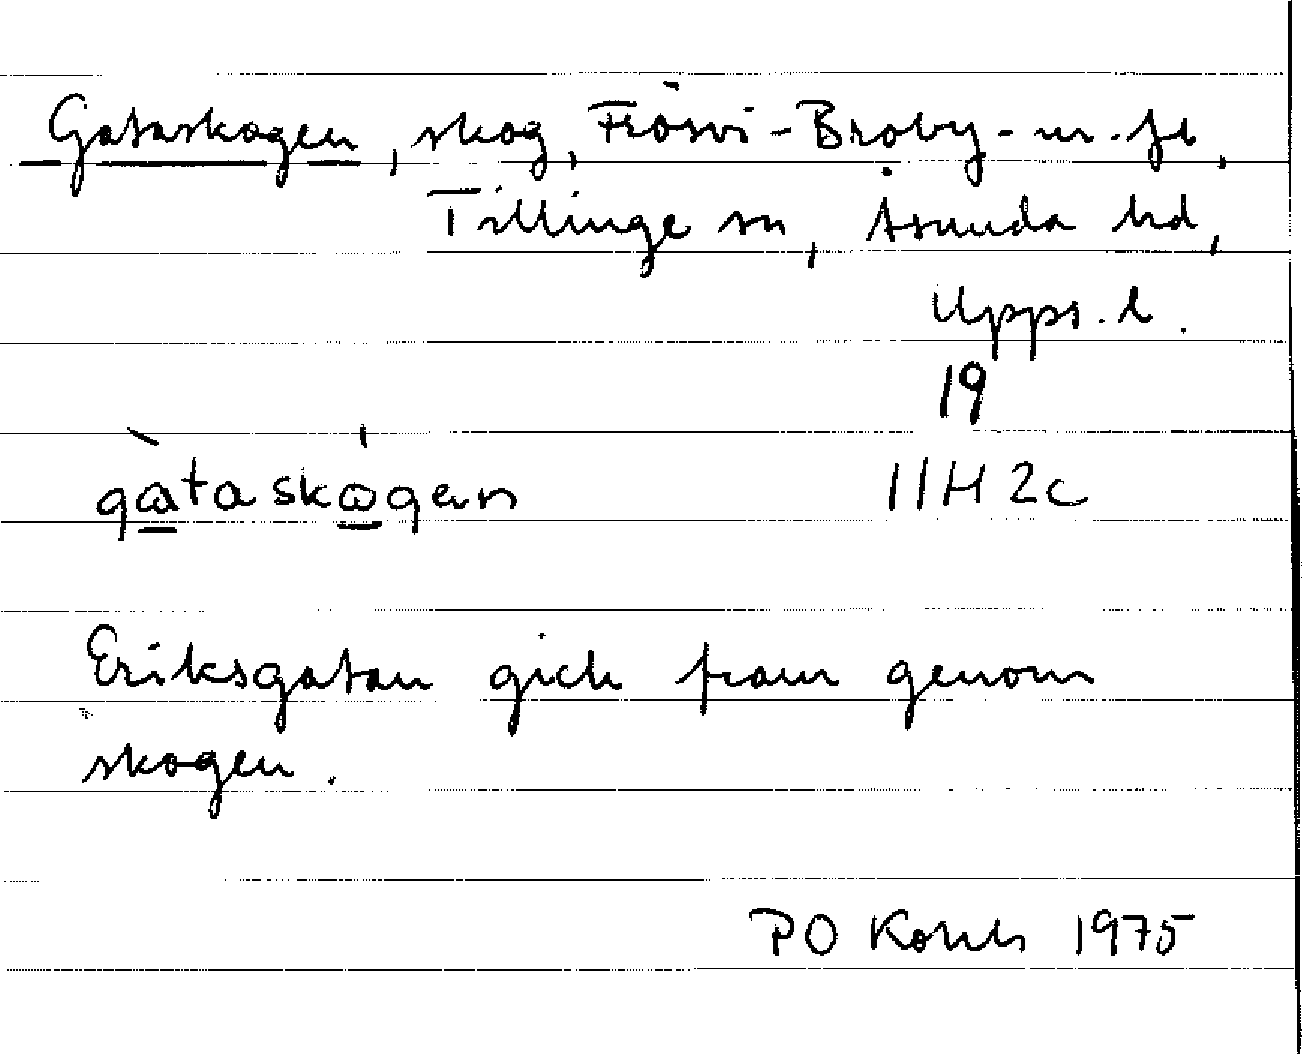 Gataskogen, skog, Frösvi-Broby-m.fl,
Tillinge sn, Åsunda hd,
Upps. l.
19
gàtaskógen 11H 2c
Eriksgatan gick fram genom
skogen.
PO 1975